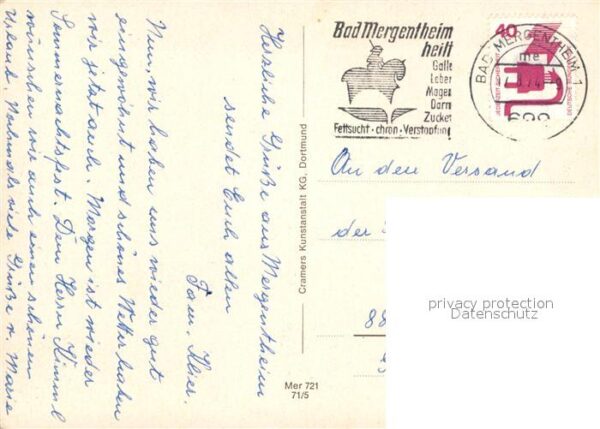 Herzliche Grüße aus Mergentheim
sendet Euch allen
Fam. Kier.
Nun, wir haben uns wieder gut
eingewöhnt und schönes Wetter haben
wir jetzt auch. Morgen ist wieder
Sommernachtsfest. Dem Herrn Kimmel
wünschen wir auch einen schönen
Urlaub. Nochmals viele Grüße v. Marie
Cramers Kunstanstalt KG, Dortmund
Mer 721
71/5
Bad Mergentheim
heilt
Galle
Leber
Magen
Darm
Zucker
Fettsucht · chron · Verstopfung
BAD MERGENTHEIM 1
me
699
40
JEDERZEIT SICHERHEIT
DEUTSCHE BUNDESPOST
An den Versand
der
88
privacy protection
Datenschutz